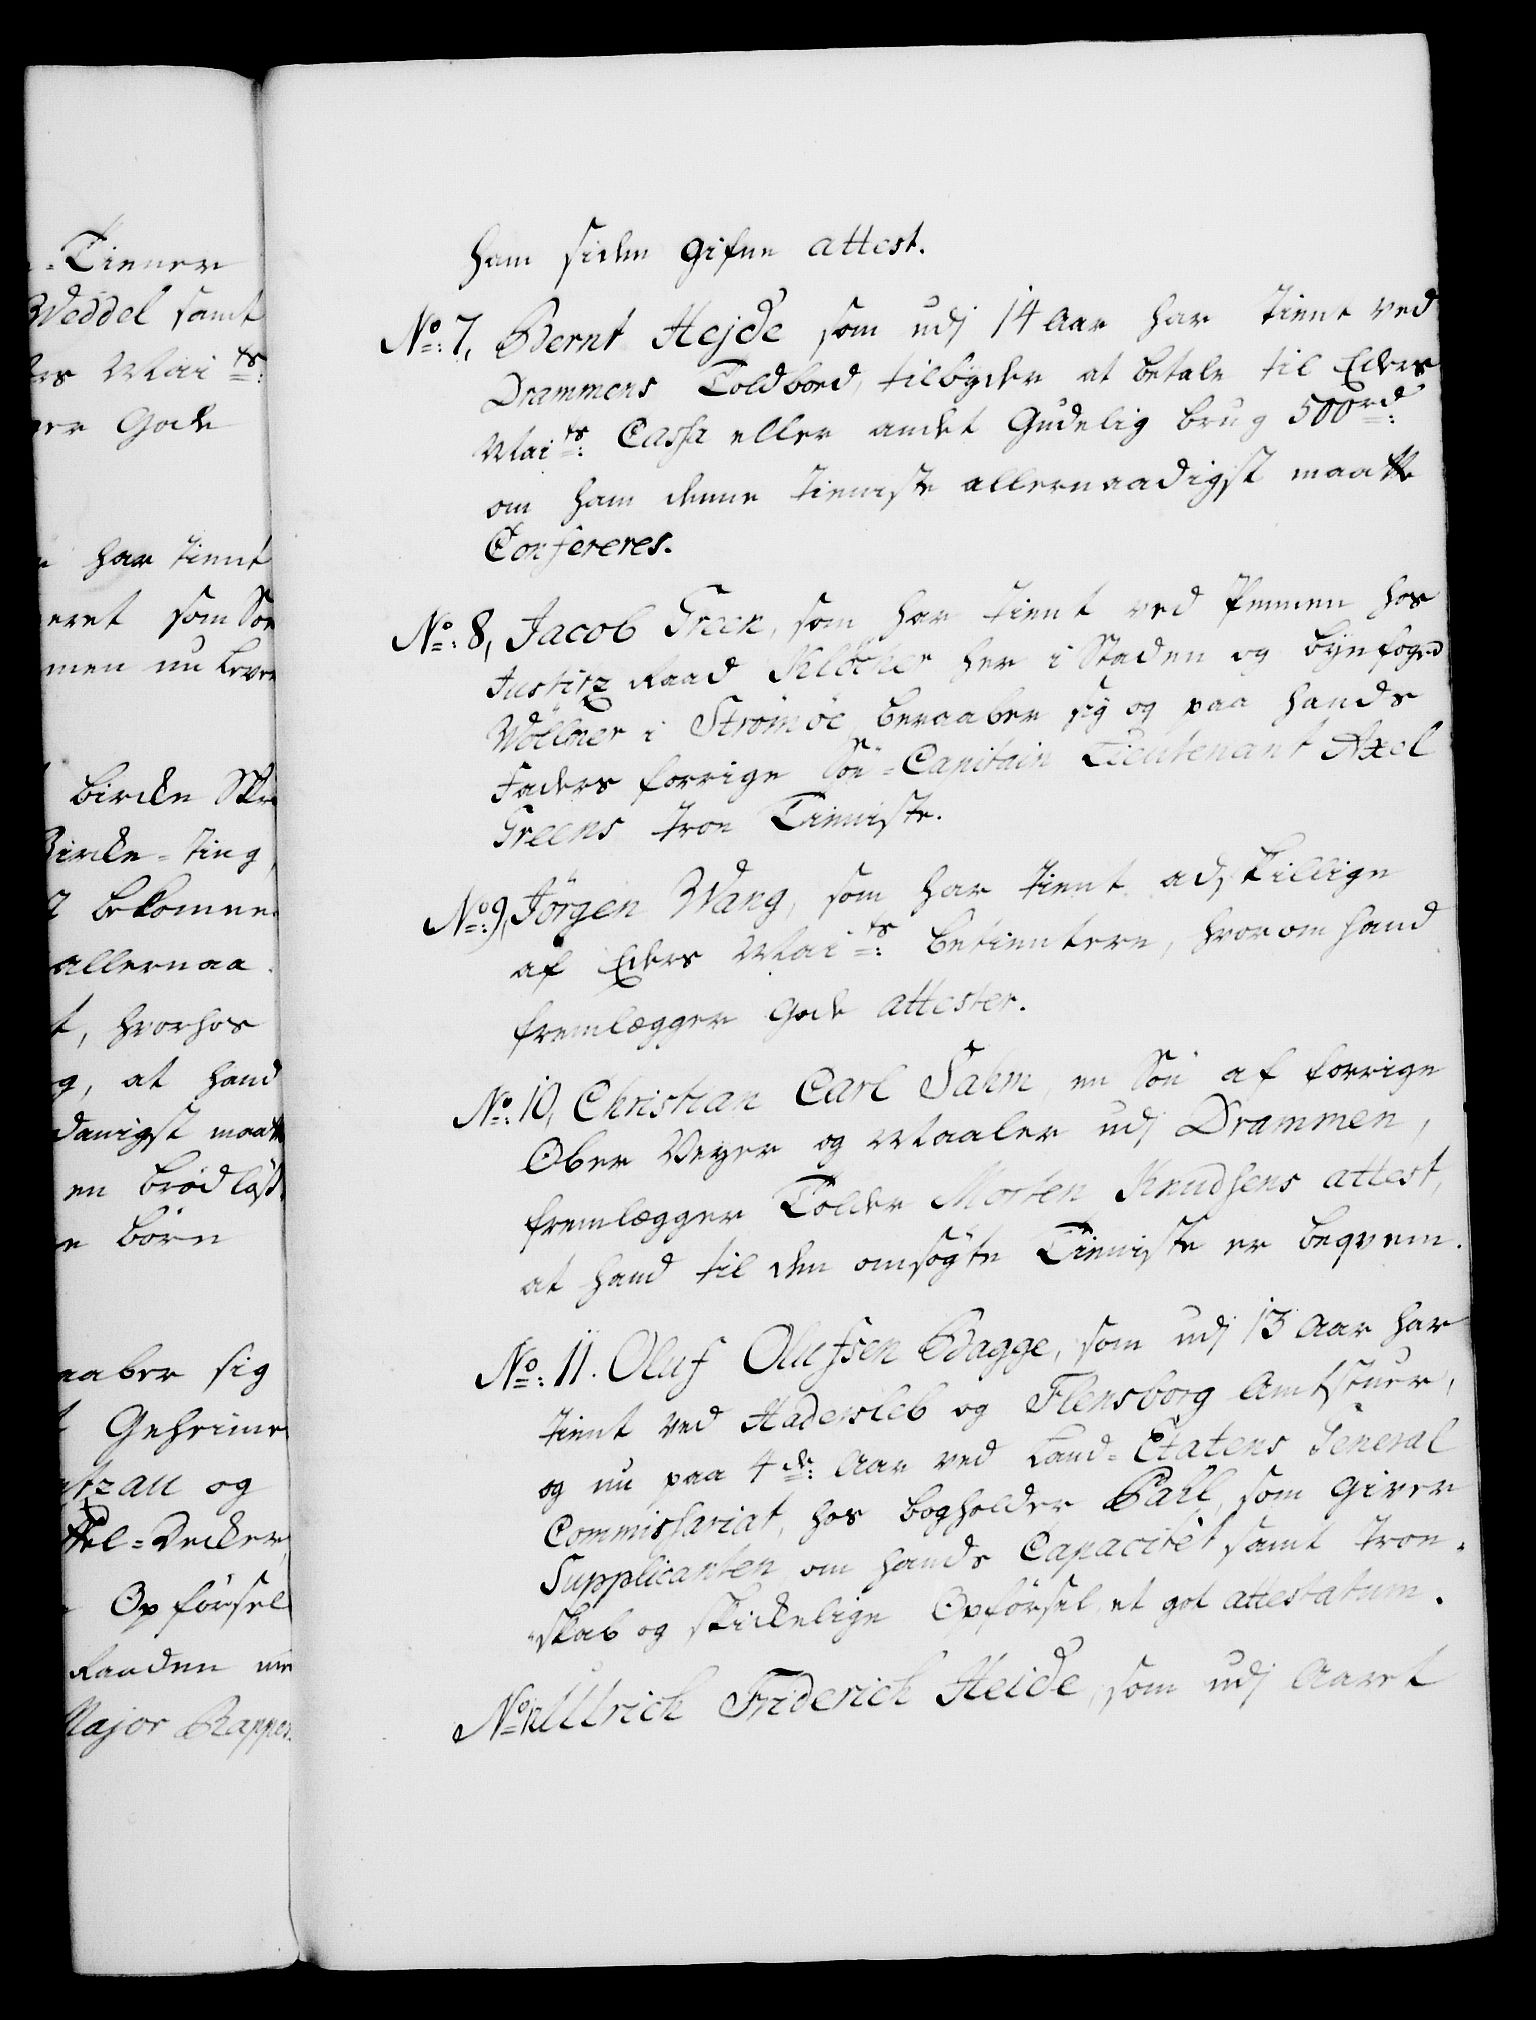 -Tiener
Weddel samt
ers Mai ts:
mer Gode
har tient
eret som Søe
men nu leve
Bircke Skri
Bircke-Ting,
bekomme
allernaa
t, hvorhos
g, at hand
danigst maatte
en brødløss
e børn
aaber sig
Geheime
ntzau og
Opførsel
Raaden
Major Rappe
ham siden gifne attest.
No: 7, Bernt Hejde som udj 14 Aar har tient ved
Drammens Toldboed, tilbyder at betale til Eders
Mai ts: Cassa eller andet Gudelig brug 500 rd:
om ham denne tieniste allernaadigst maatte
Confereres.
No: 8, Jacob Green, som har tient ved Pennen hos
Justitz Raad Klöcker her i Staden og Byefoged
Wöllner i Strømøe, beraaber sig og paa hands
Faders forrige Søe-Capitain Lieutenant Axel
Greens troe Tieniste.
No: 9, Jörgen Wang, som har tient adskillige
af Eders Mai ts: betientere, hvorom hand
fremlægger gode attester.
No: 10, Christian Carl Sahm, en Søn af forrige
Ober Veyer og Maaler udj Drammen,
fremlægger Tolder Morten Knudsens attest,
at hand til den omsøgte Tieniste er beqvem.
No: 11. Oluf Olufsen Bagge, som udj 13 Aar har
tient ved Hadersleb og Flensborg Amtstuer,
og nu paa 4de: Aar ved Land-Etatens General
Commissariat, hos bogholder Pahl, som giver
Supplicanten om hands Capacitet samt troe-
skab og skickelige Opførsel et got attestatum.
No: 12 Ulrich Friderich Heide, som udj Aaret